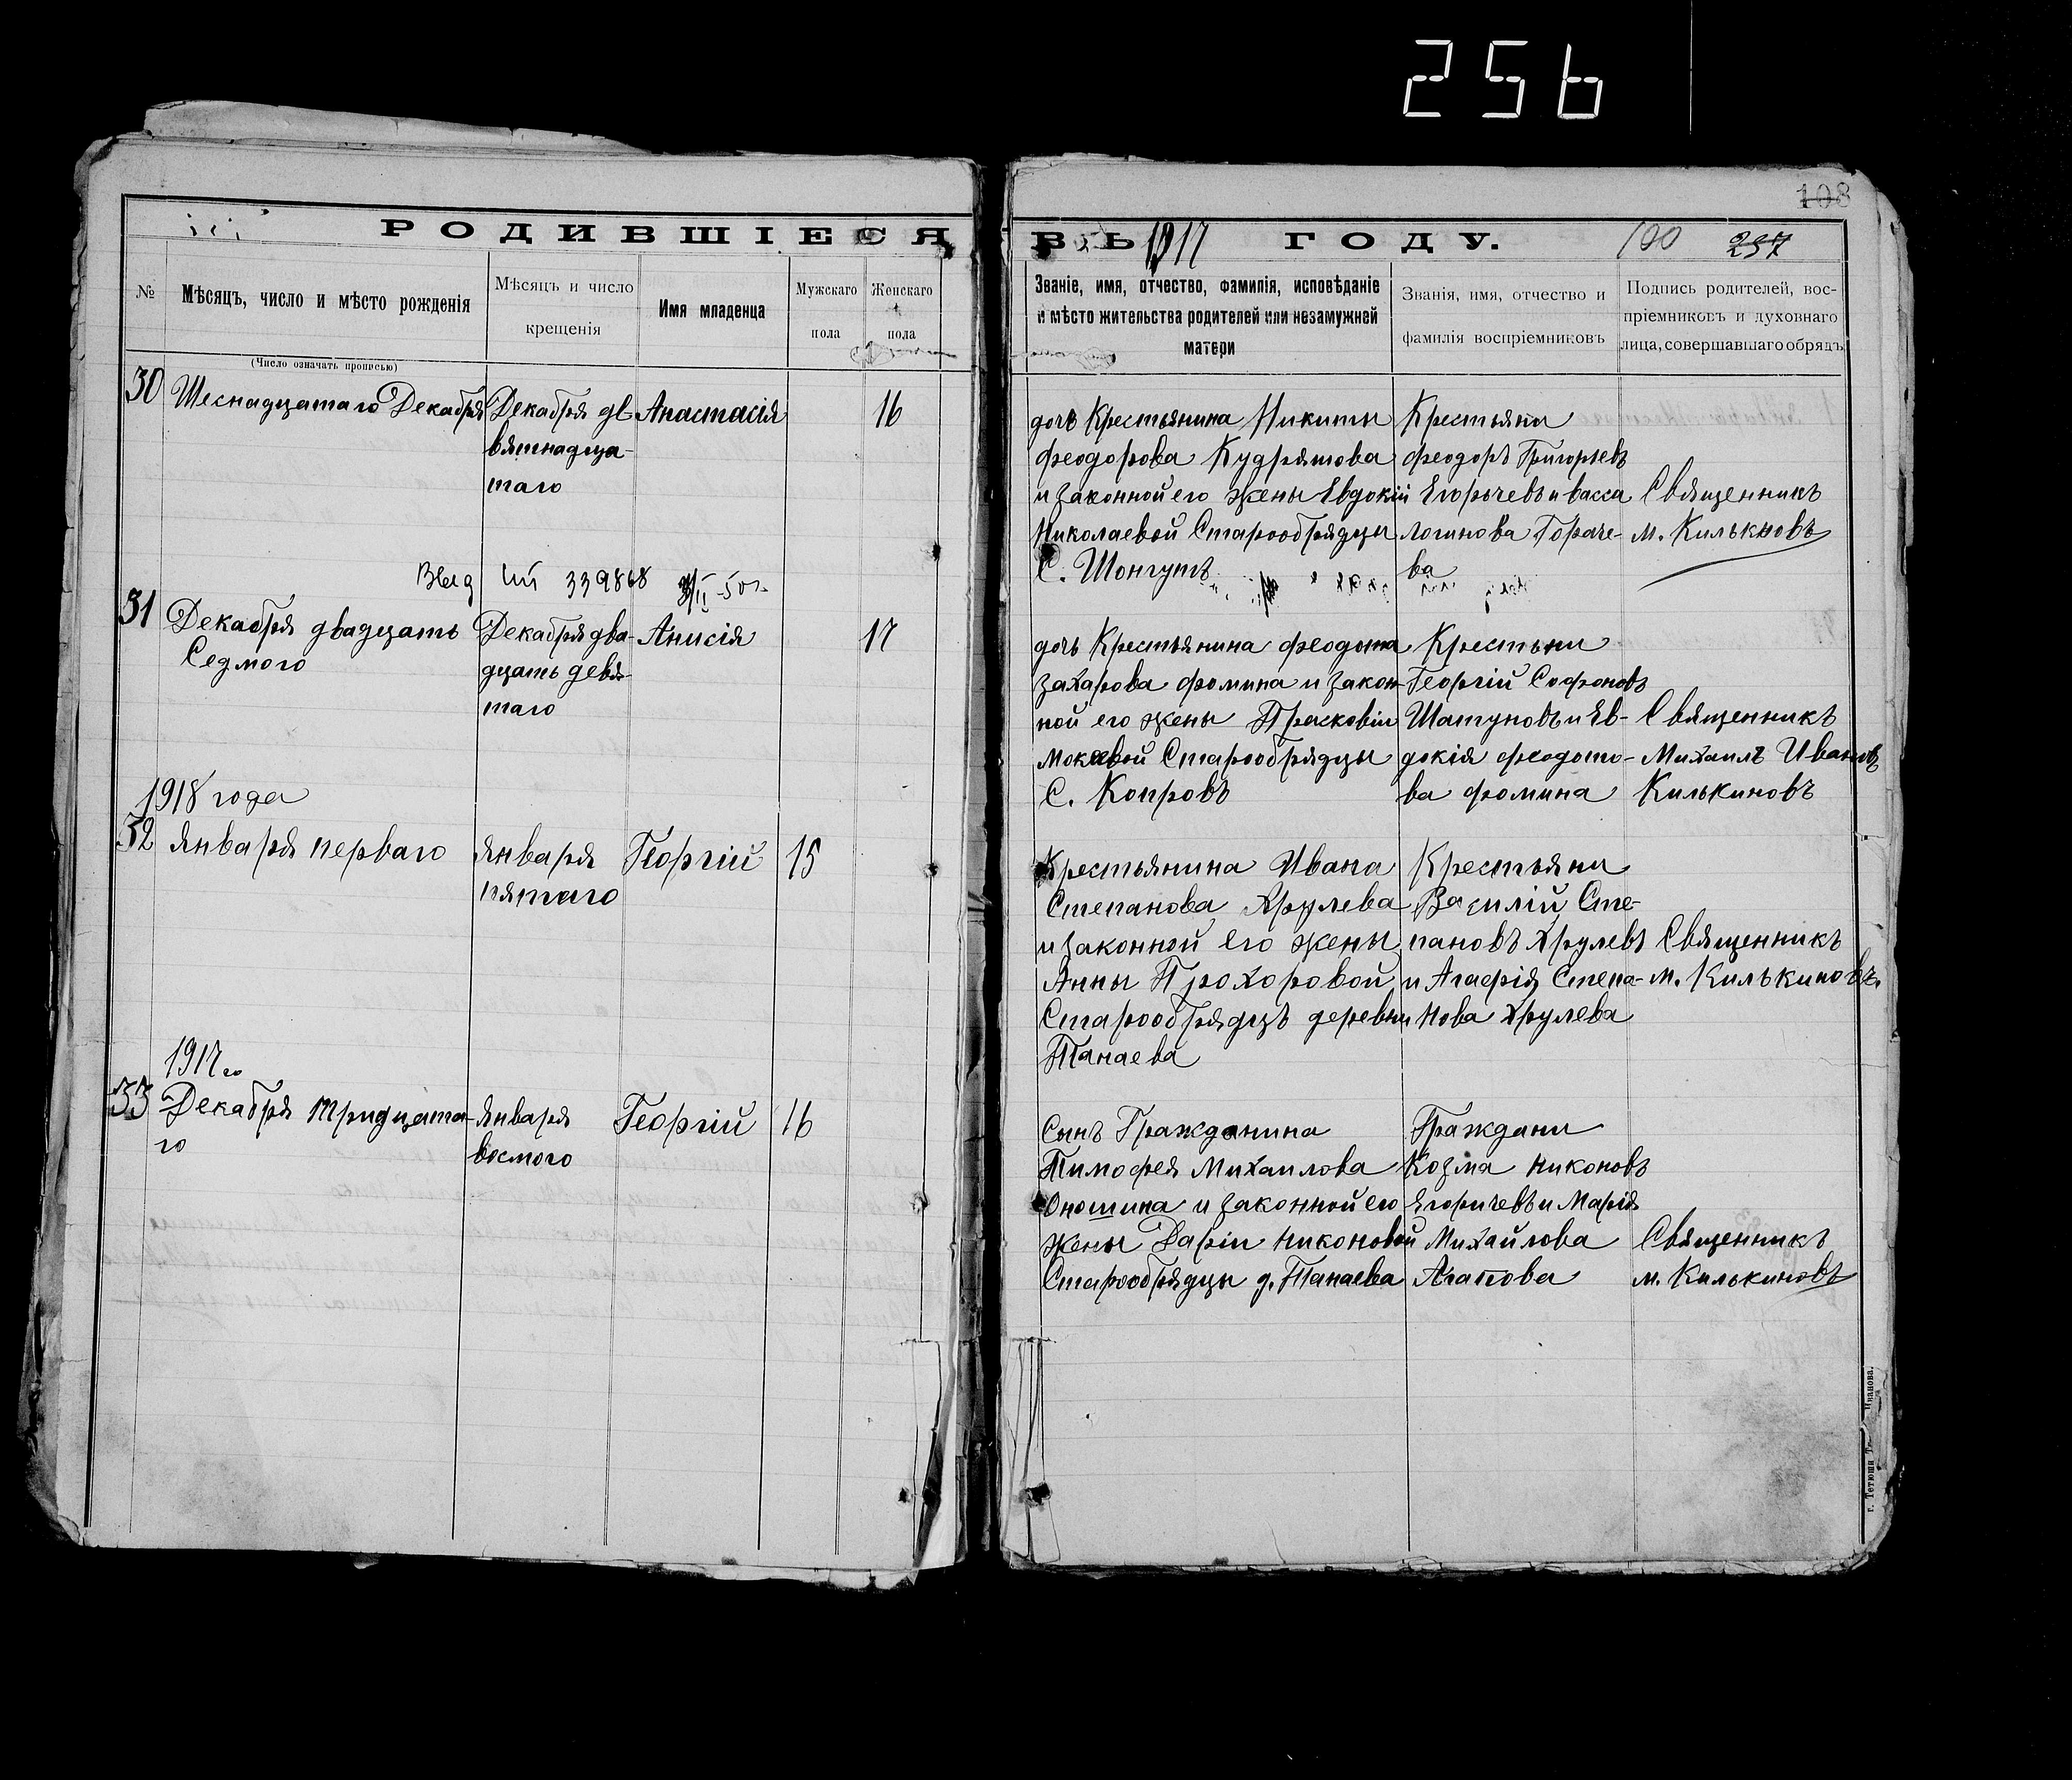 256
108
РОДИВШІЕСЯ
ВЪ 1917 ГОДУ.
100 257
№
Мѣсяцъ, число и мѣсто рожденія
(Число означать прописью)
Мѣсяцъ и число
крещенія
Имя младенца
Мужскаго
пола
Женскаго
пола
Званіе, имя, отчество, фамилія, исповѣданіе
и мѣсто жительства родителей или незамужней
матери
Званія, имя, отчество и
фамилія воспріемниковъ
Подпись родителей, вос-
пріемниковъ и духовнаго
лица, совершавшаго обрядъ
30
Шеснадцатаго Декабря
Декабря де-
вятнадца-
таго
Анастасія
16
дочь Крестьянина Никиты
Феодорова Кудряшова
и законной его жены Евдокіи
Николаевой Старообрядцы
С. Шонгутъ
Крестьяни
Феодоръ Григорьевъ
Егорычевъ и Васса
Логинова Гораче-
ва
Священникъ
М. Килькновъ
339868 50г.
31
Декабря двадцать
Седмого
Декабря два-
дцать девя-
таго
Анисія
17
дочь Крестьянина Феодота
Захарова Фомина и закон-
ной его жены Прасковіи
Мокеевой Старообрядцы
С. Копровъ
Крестьни
Георгій Софоновъ
Шатуновъ и Ев-
докія Феодото-
ва Фомина
Священникъ
Михаилъ Ивановъ
Килькиновъ
1918 года
32
Января перваго
Января
пятаго
Георгій
15
Крестьянина Ивана
Степанова Хрулева
и законной его жены
Анны Прохоровой
Старообрядцъ деревни
Танаева
Крестьяни
Василій Сте-
пановъ Хрулевъ
и Агафія Степа-
нова Хрулева
Священникъ
М. Килькиновъ.
1917 го
33
Декабря тридцата-
го
Января
восмого
Георгій
16
Сынъ Гражданина
Тимофея Михаилова
Оношина и законной его
жены Даріи Никоновой
Старообрядцы д. Танаева
Граждани
Козма Никоновъ
Ягоричевъ и Марія
Михайлова
Агапова
Священникъ
М. Килькиновъ
г. Тетюши Иванова.